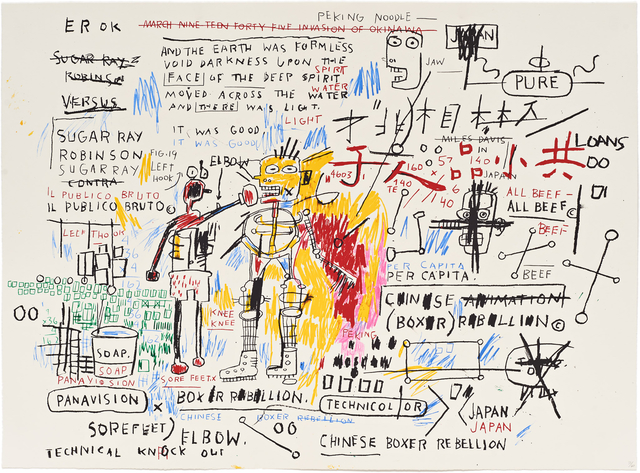 PEKING NOODLE —
ER OK
MARCH NINE TEEN FORTY FIVE INVASION OF OKINAWA
JAPAN
SUGAR RAY
ROBINSON
VERSUS
AND THE EARTH WAS FORMLESS
VOID DARKNESS UPON THE
FACE OF THE DEEP SPIRIT
SPIRIT
MOVED ACROSS THE WATER
WATER
AND THERE WAS LIGHT.
LIGHT
JAW
PURE
IT WAS GOOD,
IT WAS GOOD,
MILES DAVIS
于人品小共
LOANS
SUGAR RAY
ROBINSON
SUGARRAY
CONTRA
FIG.19
LEFT
HOOK
ELBOW
4603
160
140
57
IN
140
JAPAN
6
40
IL PUBLICO BRUTO
IL PUBLICO BRUTO©
ALL BEEF —
ALL BEEF©
LEFT HOOK
BEEF
BEEF
PER CAPITA
PER CAPITA.
CHINESE ANIMATION
(BOXER) REBELLION©
KNEE
KNEE
PEKING
MOSCOW
SOAP.
SOAP
PANAVISION
SORE FEETX
PANAVISION
X
BOX R REBELLION.
CHINESE BOXER REBELLION
TECHNICOLOR
JAPAN
JAPAN
SOREFEET)
ELBOW.
TECHNICAL KNOCK OUT
CHINESE BOXER REBELLION